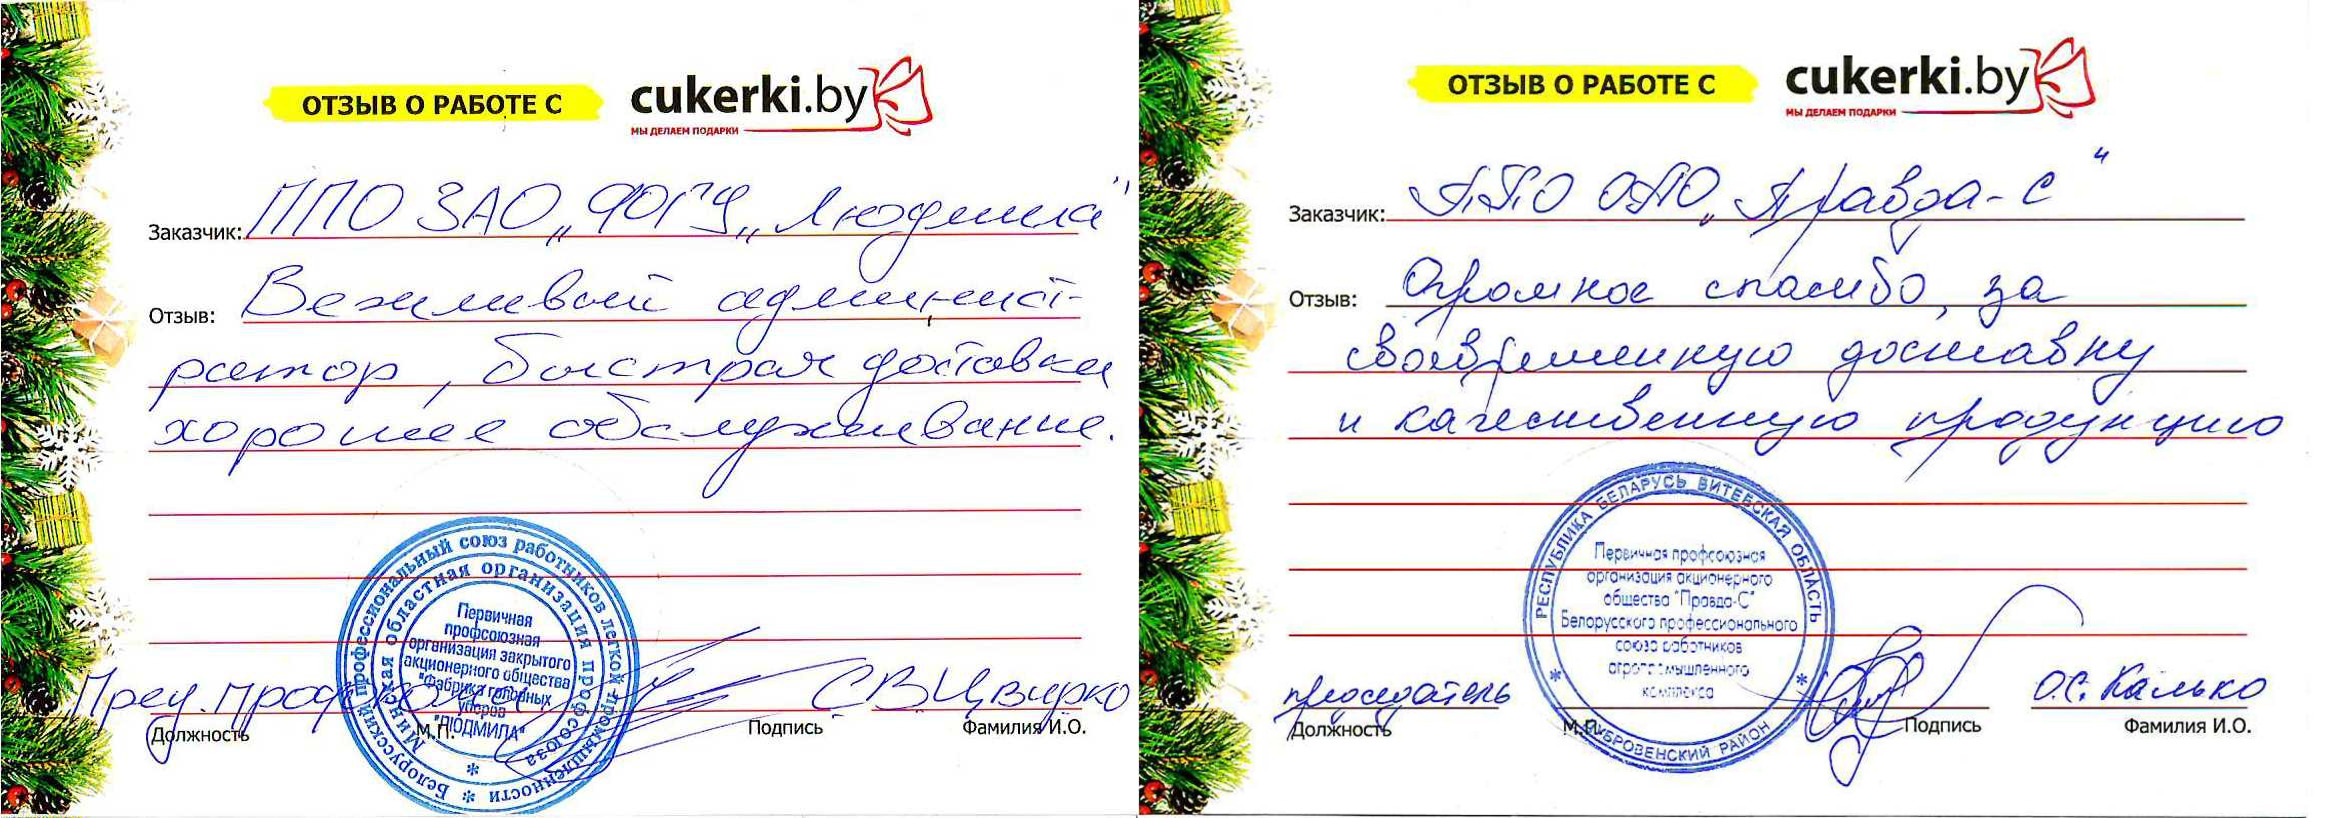 ОТЗЫВ О РАБОТЕ С
cukerki.by
МЫ ДЕЛАЕМ ПОДАРКИ
Заказчик: ППО ЗАО „ФОГУ „Людмила"
Отзыв: Вежливый админист-
ратор, быстрая доставка
хорошее обслуживание.
Белорусский профессиональный союз работников легкой промышленности
Минская областная организация профсоюза
Первичная
профсоюзная
организация закрытого
акционерного общества
"Фабрика головных
уборов
"ЛЮДМИЛА"
Пред. профкома С.В.Цвирко
Должность М.П. Подпись Фамилия И.О.
ОТЗЫВ О РАБОТЕ С
cukerki.by
МЫ ДЕЛАЕМ ПОДАРКИ
Заказчик: ППО ОАО „Правда-С"
Отзыв: Огромное спасибо, за
своевременную доставку
и качественную продукцию
РЕСПУБЛИКА БЕЛАРУСЬ ВИТЕБСКАЯ ОБЛАСТЬ
Первичная профсоюзная
организация акционерного
общества "Правда-С"
Белорусского профессионального
союза работников
агропромышленного
комплекса
ДУБРОВЕНСКИЙ РАЙОН
председатель О.С. Калько
Должность М.П. Подпись Фамилия И.О.